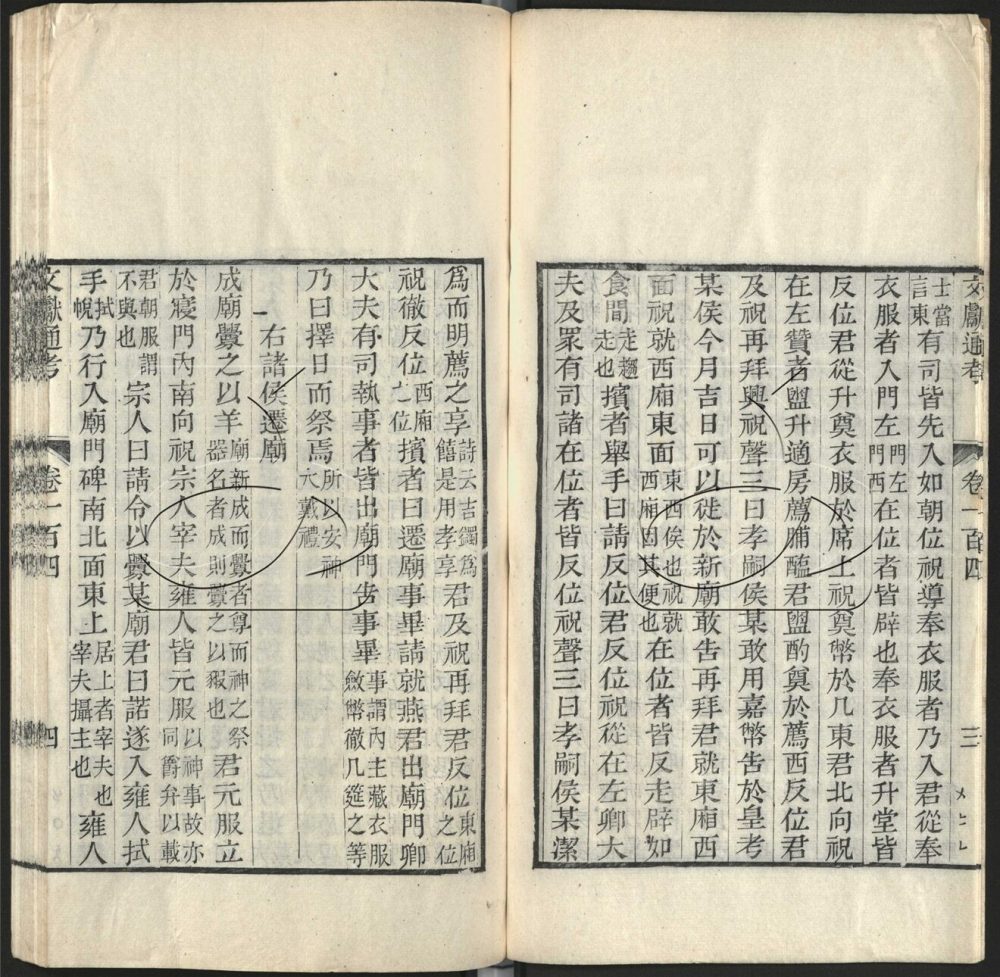 文獻通考 卷一百四 三
士當言東有司皆先入如朝位祝導奉衣服者乃入君從奉
衣服者入門左門左門西在位者皆辟也奉衣服者升堂皆
反位君從升奠衣服於席上祝奠幣於几東君北向祝
在左贊者盥升適房薦脯醢君盥酌奠於薦西反位君
及祝再拜興祝聲三曰孝嗣侯某敢用嘉幣告於皇考
某侯今月吉日可以徙於新廟敢告再拜君就東廂西
面祝就西廂東面東西俟也祝就西廂因其便也在位者皆反走辟如
食間走趨走也擯者舉手曰請反位君反位祝從在左卿大
夫及眾有司諸在位者皆反位祝聲三曰孝嗣侯某潔
爲而明薦之享詩云吉蠲爲饎是用孝享君及祝再拜君反位東廂之位
祝徹反位西廂之位擯者曰遷廟事畢請就燕君出廟門卿
大夫有司執事者皆出廟門告事畢事謂內主藏衣服斂幣徹几筵之等
乃曰擇日而祭焉所以安神大戴禮
右諸侯遷廟
成廟釁之以羊廟新成而釁者尊而神之祭器名者成則釁之以豭也君元服立
於寢門內南向祝宗人宰夫雍人皆元服以神事故亦同爵弁以載
君朝服謂不與也宗人曰請令以釁某廟君曰諾遂入雍人拭
手拭帨乃行入廟門碑南北面東上居上者宰夫也宰夫攝主也雍人
文獻通考 卷一百四 四